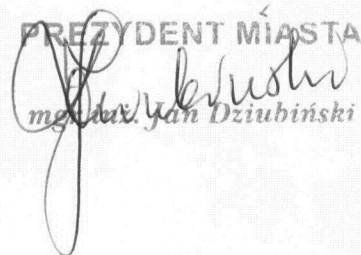 PREZYDENT MIASTA
mgr inż. Jan Dziubiński